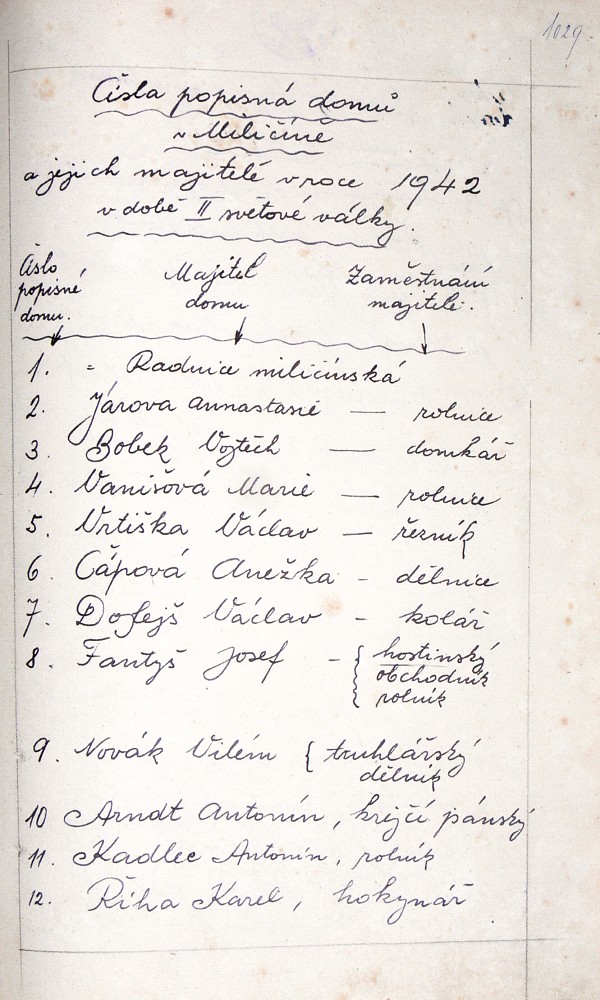 1029.
Čísla popisná domů
v Miličíně
a jejich majitelé v roce 1942
v době II světové války.
Číslo popisné domu. Majitel domu Zaměstnání majitele.
1. = Radnice miličínská
2. Járova Annastasie — rolnice
3. Bobek Vojtěch — domkář
4. Vanišová Marie — rolnice
5. Vrtiška Václav — řezník
6. Čápová Anežka - dělnice
7. Dofejš Václav - kolář
8. Fantyš Josef - { hostinský
obchodník
rolník
9. Novák Vilém { truhlářský
dělník
10 Arndt Antonín, krejčí pánský
11. Kadlec Antonín, rolník
12. Říha Karel, hokynář